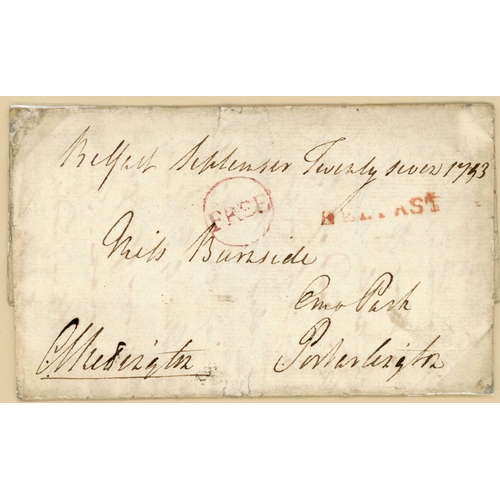 Belfast September Twenty seven 1793
FREE
BELFAST
Miss Burnside
Emo Park
Portarlington